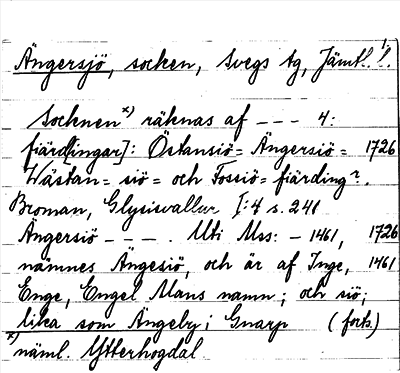 Ängersjö, socken, Svegs tg, Jämtl. l.
Socknen x) räknas af --- 4:
fiärd[ingar]: Östansiö= Ängersiö= 1726
Wästan= siö= och Fossiö= fiärding?.
Broman, Glysisvallur I:4 s. 241
Ängersiö - - - . Uti Mss: - 1461, 1726
nämnes Ängesiö, och är af Inge, 1461
Enge, Engel Mans namn; och siö;
lika som Ängeby i Gnarp (forts.)
x) näml. Ytterhogdal.